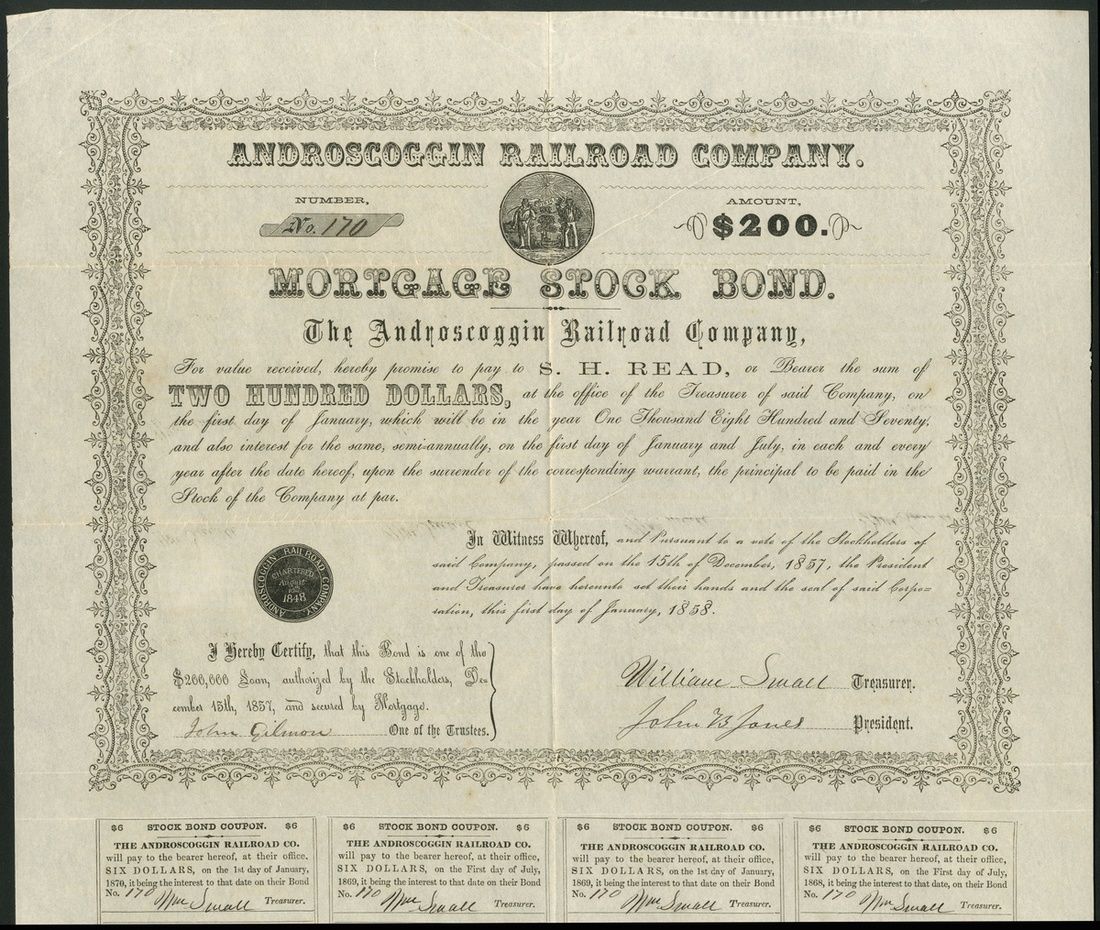 ANDROSCOGGIN RAILROAD COMPANY.
NUMBER,
No. 170
AMOUNT,
$200.
MORTGAGE STOCK BOND.
The Androscoggin Railroad Company,
For value received, hereby promise to pay to S. H. READ, or Bearer the sum of
TWO HUNDRED DOLLARS, at the office of the Treasurer of said Company, on
the first day of January, which will be in the year One Thousand Eight Hundred and Seventy,
and also interest for the same, semi-annually, on the first day of January and July, in each and every
year after the date hereof, upon the surrender of the corresponding warrant, the principal to be paid in the
Stock of the Company at par.
In Witness Whereof, and Pursuant to a vote of the Stockholders of
said Company, passed on the 15th of December, 1857, the President
and Treasurer have hereunto set their hands and the seal of said Corpo-
ration, this first day of January, 1858.
ANDROSCOGGIN RAILROAD COMPANY.
CHARTERED
August
1848
I Hereby Certify, that this Bond is one of the
$200,000 Loan, authorized by the Stockholders, De-
cember 15th, 1857, and secured by Mortgage.
John Gilmon One of the Trustees.
William Small Treasurer.
John B Jones President.
$6 STOCK BOND COUPON. $6
THE ANDROSCOGGIN RAILROAD CO.
will pay to the bearer hereof, at their office,
SIX DOLLARS, on the 1st day of January,
1870, it being the interest to that date on their Bond
No. 170 Wm Small Treasurer.
$6 STOCK BOND COUPON. $6
THE ANDROSCOGGIN RAILROAD CO.
will pay to the bearer hereof, at their office,
SIX DOLLARS, on the First day of July,
1869, it being the interest to that date on their Bond
No. 170 Wm Small Treasurer.
$6 STOCK BOND COUPON. $6
THE ANDROSCOGGIN RAILROAD CO.
will pay to the bearer hereof, at their office,
SIX DOLLARS, on the 1st day of January,
1869, it being the interest to that date on their Bond
No. 170 Wm Small Treasurer.
$6 STOCK BOND COUPON. $6
THE ANDROSCOGGIN RAILROAD CO.
will pay to the bearer hereof, at their office,
SIX DOLLARS, on the First day of July,
1868, it being the interest to that date, on their Bond
No. 170 Wm Small Treasurer.